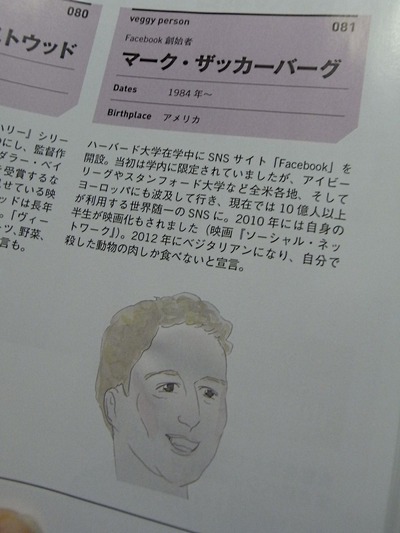 080
ストウッド
ハリー』シリー
にし、監督作
ダラー・ベイ
を受賞するな
せている映
ッドは長年
。『ヴィー
ーツ、野菜、
言も。
veggy person
081
Facebook 創始者
マーク・ザッカーバーグ
Dates 1984 年〜
Birthplace アメリカ
ハーバード大学在学中に SNS サイト「Facebook」を
開設。当初は学内に限定されていましたが、アイビー
リーグやスタンフォード大学など全米各地、そして
ヨーロッパにも波及して行き、現在では 10 億人以上
が利用する世界随一の SNS に。2010 年には自身の
半生が映画化もされました（映画『ソーシャル・ネッ
トワーク』）。2012 年にベジタリアンになり、自分で
殺した動物の肉しか食べないと宣言。